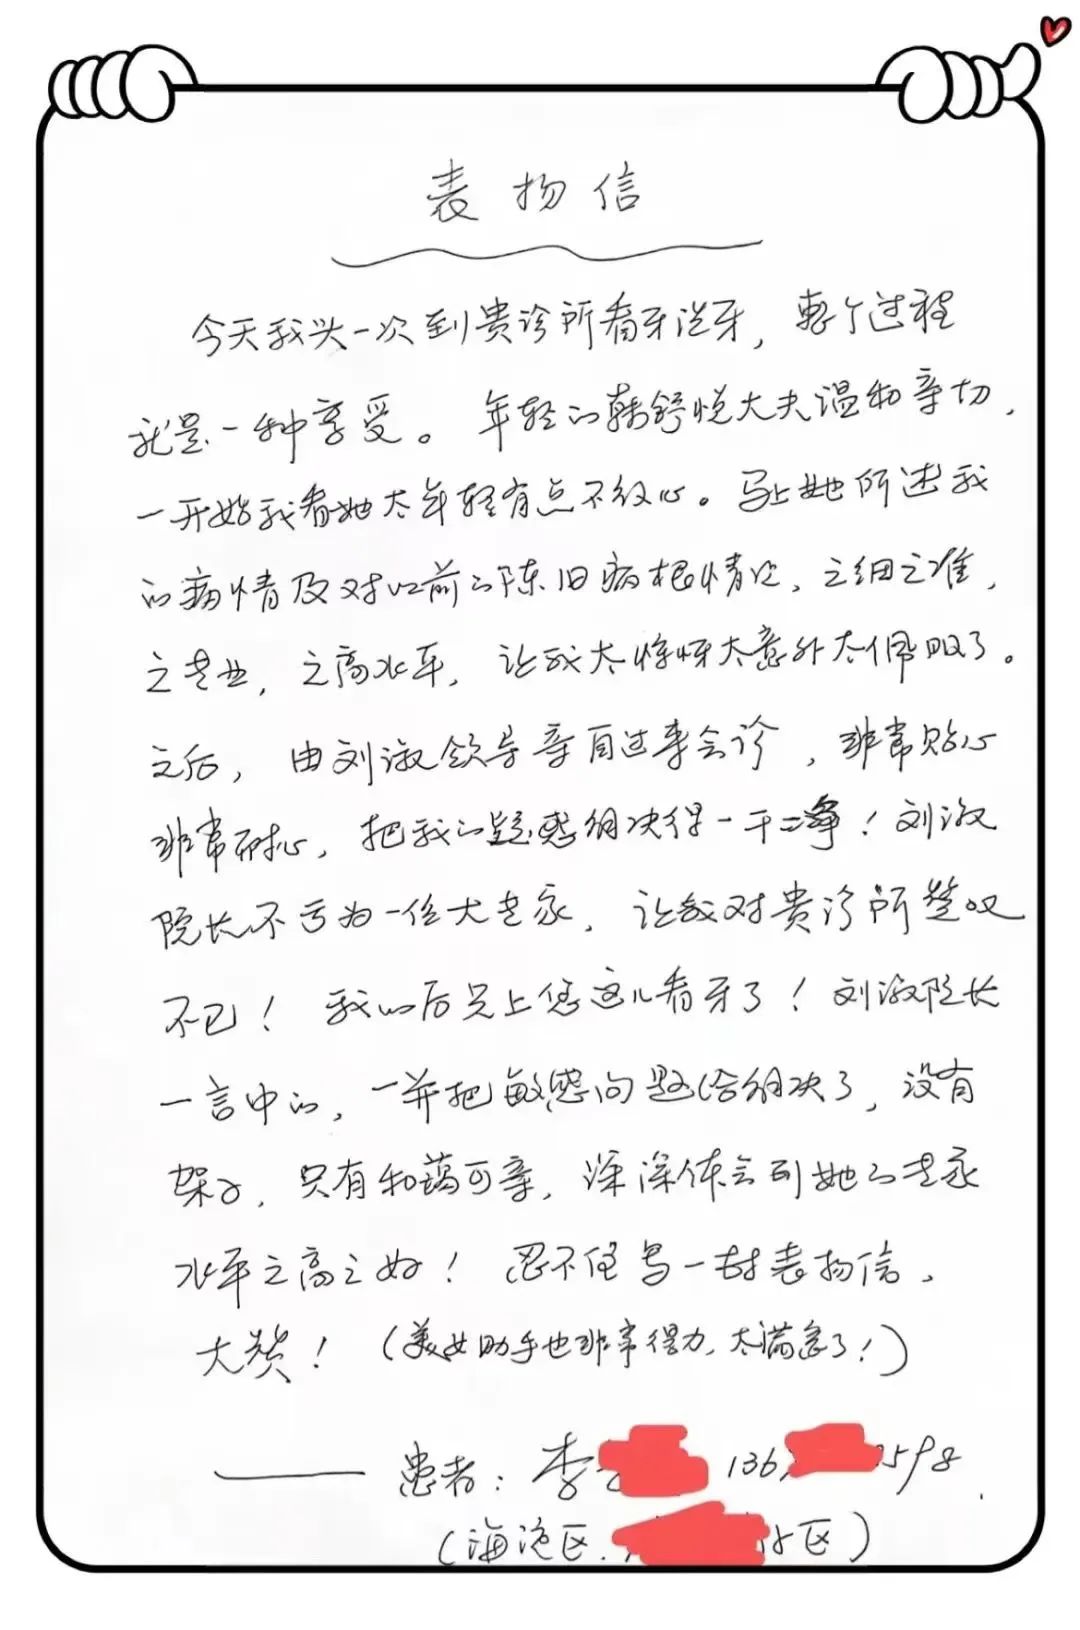 表扬信
今天我头一次到贵诊所看牙洗牙，整个过程
就是一种享受。年轻的韩舒悦大夫温和亲切，
一开始我看她太年轻有点不放心。马上她所述我
的病情及对以前的陈旧病根情况，之细之准，
之专业，之高水平，让我太惊讶太意外太佩服了。
之后，由刘淑领导亲自过来会诊，非常贴心
非常耐心，把我的疑惑解决得一干二净！刘淑
院长不亏为一位大专家，让我对贵诊所赞叹
不已！我以后只上您这儿看牙了！刘淑院长
一言中的，一并把敏感问题给解决了，没有
架子，只有和蔼可亲，深深体会到她的专家
水平之高之好！忍不住写一封表扬信，
大赞！（美女助手也非常得力，太满意了！）
——患者：李 136 598
（海淀区. 区）